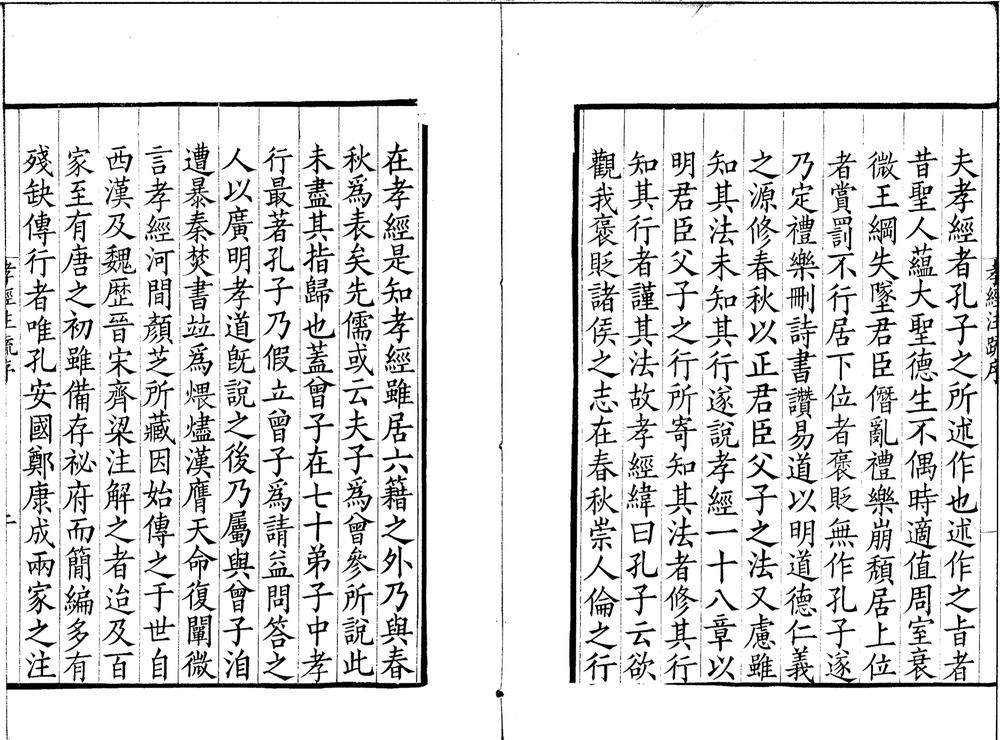 孝經注疏序
夫孝經者孔子之所述作也述作之旨者
昔聖人蘊大聖德生不偶時適值周室衰
微王綱失墜君臣僭亂禮樂崩頹居上位
者賞罰不行居下位者褒貶無作孔子遂
乃定禮樂刪詩書讚易道以明道德仁義
之源修春秋以正君臣父子之法又慮雖
知其法未知其行遂說孝經一十八章以
明君臣父子之行所寄知其法者修其行
知其行者謹其法故孝經緯曰孔子云欲
觀我褒貶諸侯之志在春秋崇人倫之行
在孝經是知孝經雖居六籍之外乃與春
秋爲表矣先儒或云夫子爲曾參所說此
未盡其指歸也蓋曾子在七十弟子中孝
行最著孔子乃假立曾子爲請益問答之
人以廣明孝道旣說之後乃屬與曾子洎
遭暴秦焚書竝爲煨燼漢膺天命復闡微
言孝經河間顏芝所藏因始傳之于世自
西漢及魏歷晉宋齊梁注解之者迨及百
家至有唐之初雖備存祕府而簡編多有
殘缺傳行者唯孔安國鄭康成兩家之注
孝經注疏序